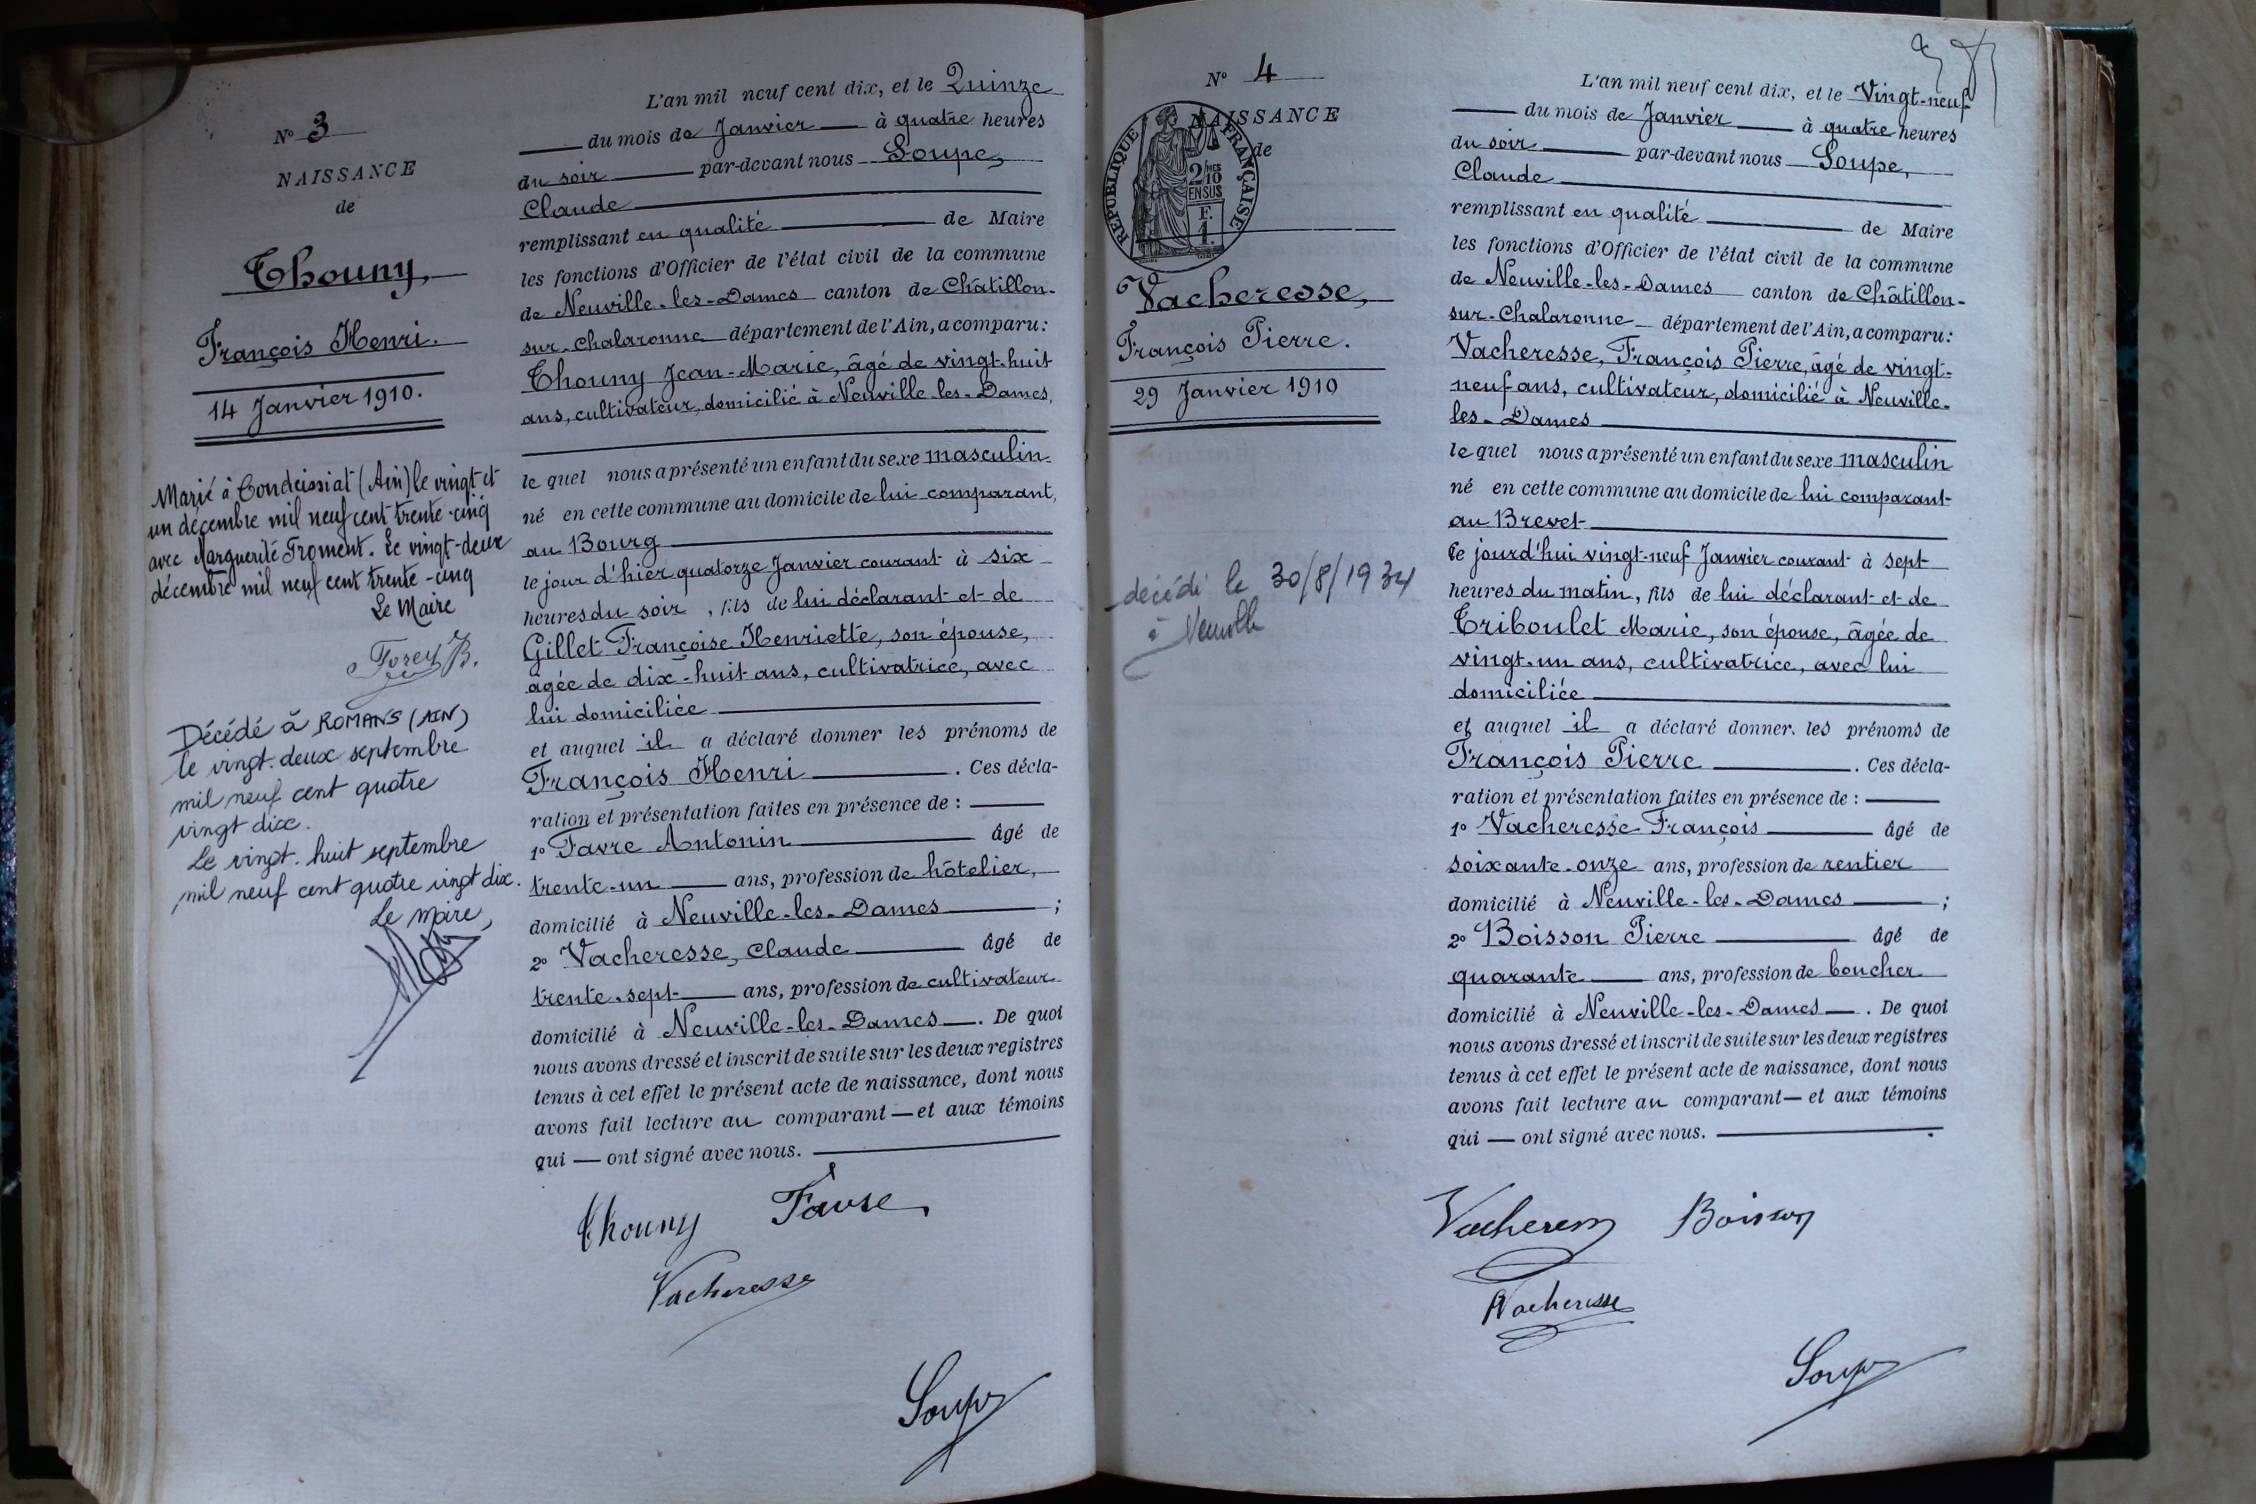 N° 3
NAISSANCE
de
Thouny,
François Henri.
14 Janvier 1910.
Marié à Condeissiat (Ain) le vingt et
un décembre mil neuf cent trente-cinq
avec Marguerite Froment. Le vingt-deux
décembre mil neuf cent trente-cinq
Le Maire
Décédé à ROMANS (AIN)
le vingt-deux septembre
mil neuf cent quatre
vingt dix.
Le vingt-huit septembre
mil neuf cent quatre vingt dix.
Le maire,
L'an mil neuf cent dix, et le Quinze
du mois de Janvier à quatre heures
du soir par-devant nous Soupe,
Claude
remplissant en qualité de Maire
les fonctions d'Officier de l'état civil de la commune
de Neuville-les-Dames canton de Châtillon-
sur-Chalaronne département de l'Ain, a comparu:
Thouny Jean-Marie, âgé de vingt-huit
ans, cultivateur, domicilié à Neuville-les-Dames,
le quel nous a présenté un enfant du sexe masculin
né en cette commune au domicile de lui comparant,
au Bourg
le jour d'hier quatorze Janvier courant à six
heures du soir, fils de lui déclarant et de
Gillet Françoise Henriette, son épouse,
âgée de dix-huit ans, cultivatrice, avec
lui domiciliée
et auquel il a déclaré donner les prénoms de
François Henri. Ces décla-
ration et présentation faites en présence de :
1° Favre Antonin âgé de
trente-un ans, profession de hôtelier,
domicilié à Neuville-les-Dames ;
2° Vacheresse, Claude âgé de
trente-sept ans, profession de cultivateur
domicilié à Neuville-les-Dames. De quoi
nous avons dressé et inscrit de suite sur les deux registres
tenus à cet effet le présent acte de naissance, dont nous
avons fait lecture au comparant — et aux témoins
qui — ont signé avec nous.
Thouny Favre
Vacheresse
Soupe
N° 4
NAISSANCE
de
RÉPUBLIQUE FRANÇAISE
2/10MES
EN SUS
F.
1.
Vacheresse,
François Pierre.
29 Janvier 1910
décédé le 30/8/1934
à Neuville
L'an mil neuf cent dix, et le Vingt-neuf
du mois de Janvier à quatre heures
du soir par-devant nous Soupe,
Claude
remplissant en qualité de Maire
les fonctions d'Officier de l'état civil de la commune
de Neuville-les-Dames canton de Châtillon-
sur-Chalaronne département de l'Ain, a comparu:
Vacheresse, François Pierre, âgé de vingt-
neuf ans, cultivateur, domicilié à Neuville-
les-Dames
le quel nous a présenté un enfant du sexe masculin
né en cette commune au domicile de lui comparant
au Brevet
ce jourd'hui vingt-neuf Janvier courant à sept
heures du matin, fils de lui déclarant et de
Triboulet Marie, son épouse, âgée de
vingt-un ans, cultivatrice, avec lui
domiciliée
et auquel il a déclaré donner les prénoms de
François Pierre. Ces décla-
ration et présentation faites en présence de :
1° Vacheresse François âgé de
soixante-onze ans, profession de rentier
domicilié à Neuville-les-Dames ;
2° Boisson Pierre âgé de
quarante ans, profession de boucher
domicilié à Neuville-les-Dames. De quoi
nous avons dressé et inscrit de suite sur les deux registres
tenus à cet effet le présent acte de naissance, dont nous
avons fait lecture au comparant — et aux témoins
qui — ont signé avec nous.
Vacheresse Boisson
Vacheresse
Soupe